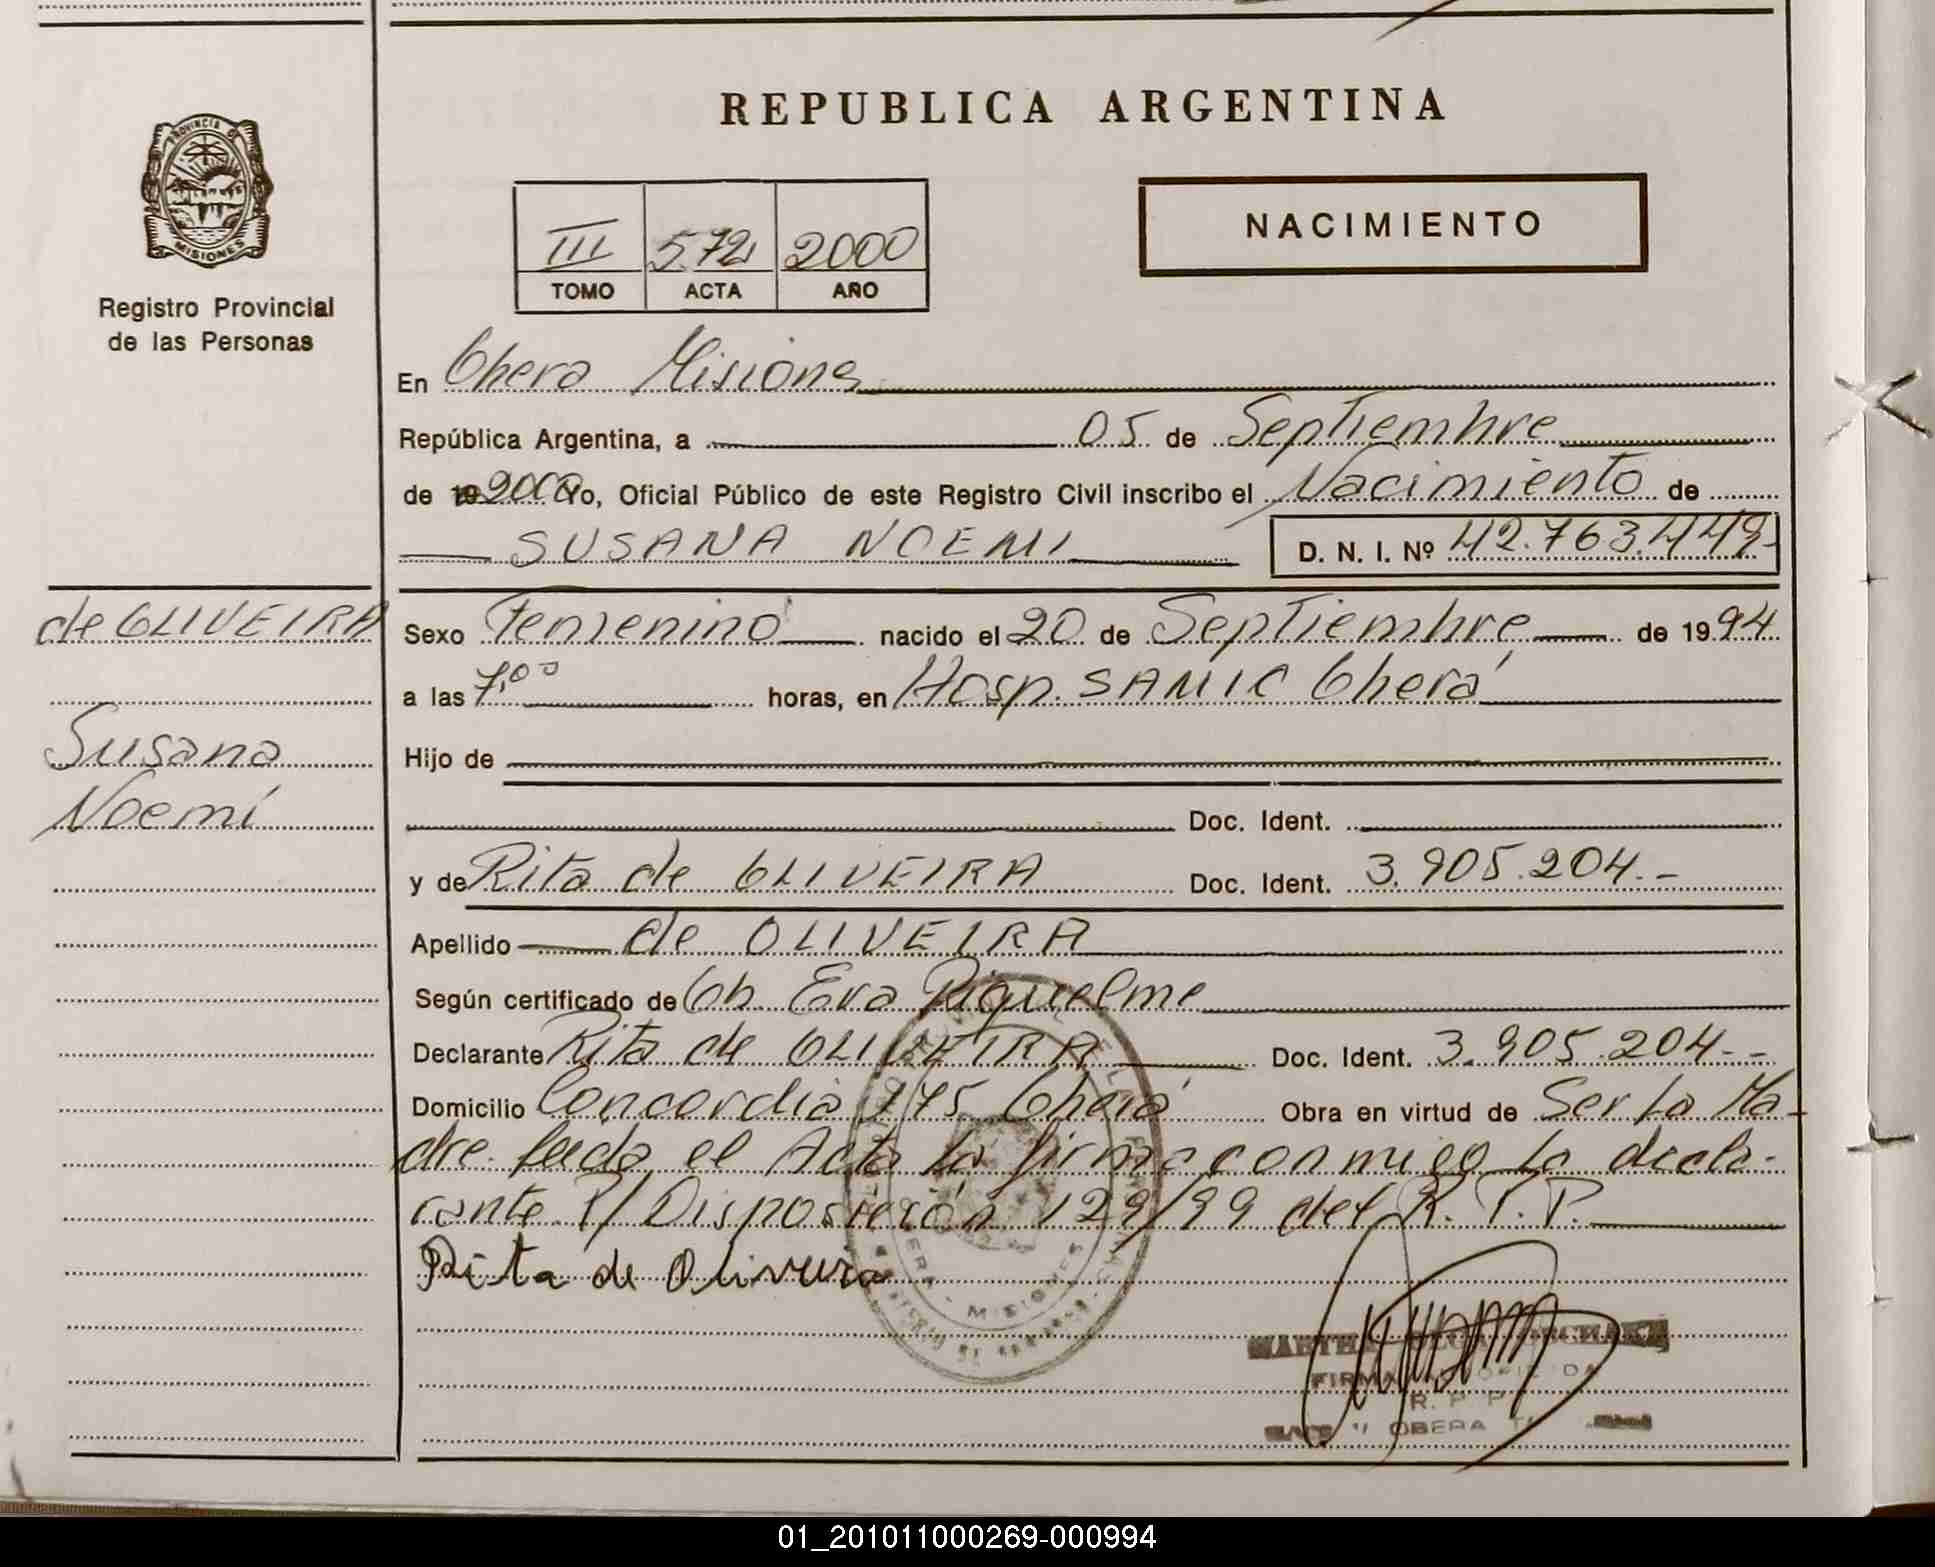 REPUBLICA ARGENTINA
PROVINCIA D
MISIONES
Registro Provincial
de las Personas
III 572 2000
TOMO ACTA AÑO
NACIMIENTO
En Oberá Misiones
República Argentina, a 05 de Septiembre
de 19 2000 Yo, Oficial Público de este Registro Civil inscribo el Nacimiento de
SUSANA NOEMI D. N. I. Nº 42.763.449-
de OLIVEIRA
Susana
Noemí
Sexo Femenino nacido el 20 de Septiembre de 1994
a las 7,00 horas, en Hosp. SAMIC Oberá
Hijo de
Doc. Ident.
y de Rita de OLIVEIRA Doc. Ident. 3.905.204.-
Apellido de OLIVEIRA
Según certificado de Ob. Eva Riquelme
Declarante Rita de OLIVEIRA Doc. Ident. 3.905.204.-
Domicilio Concordia 175 Oberá Obra en virtud de Ser La Ma-
dre. leída el Acta la firma conmigo la decla-
rante P/ Disposición 129/99 del R. P. P.
Rita de Oliveira
OBERA - MISIONES
FIRMA
R. P. P.
OBERA
01_201011000269-000994